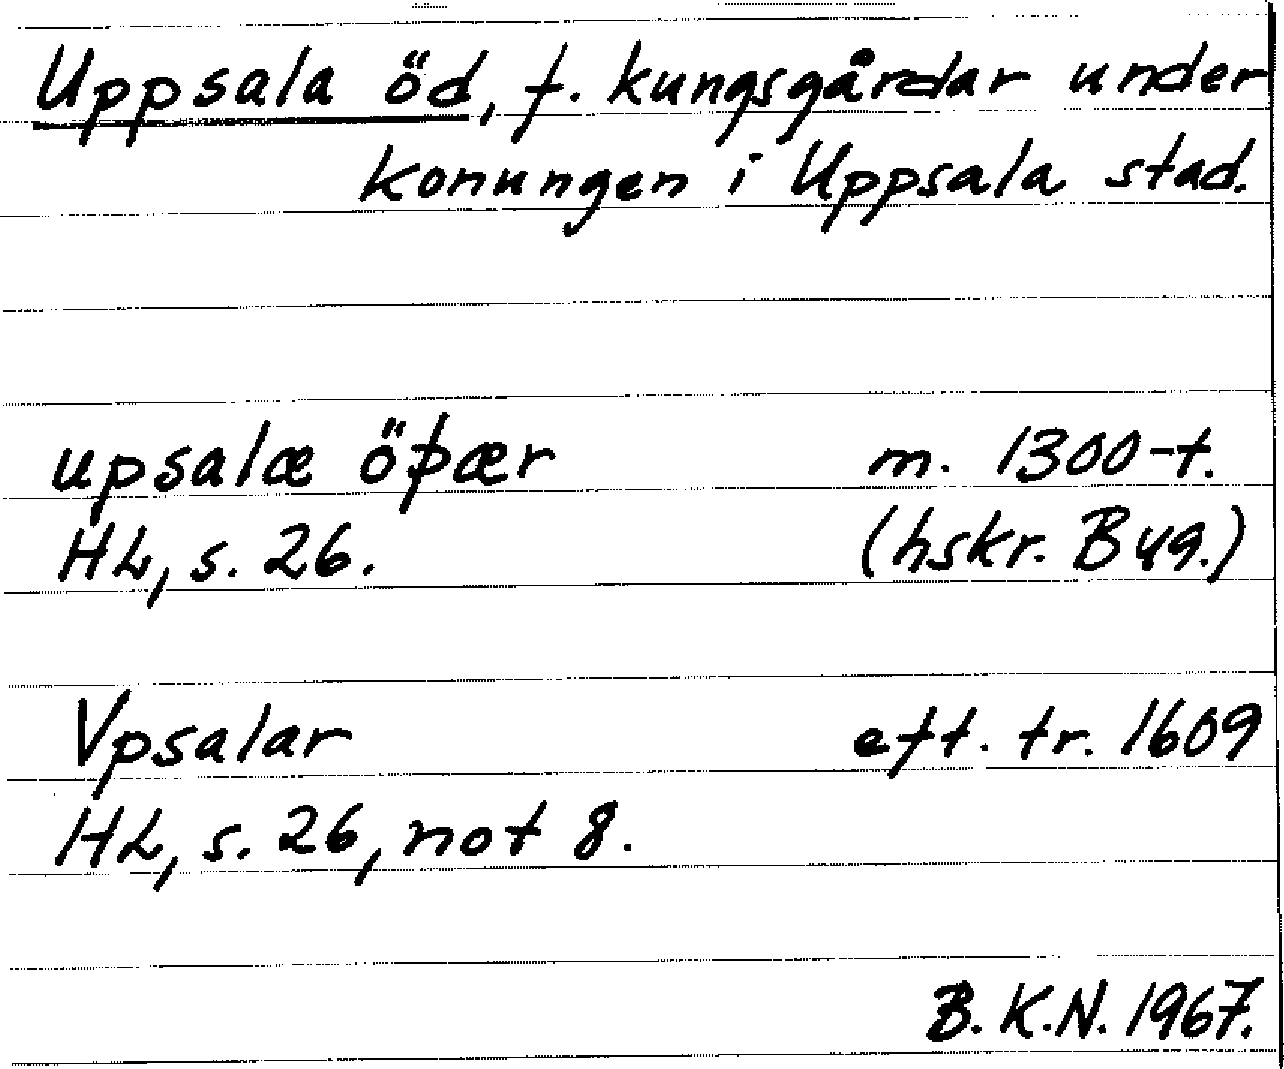 Uppsala öd, f. kungsgårdar under
konungen i Uppsala stad.
upsalæ öþær m. 1300-t.
HL, s. 26. (hskr. B 49.)
Vpsalar eft. tr. 1609
HL, s. 26, not 8.
B. K.N. 1967.